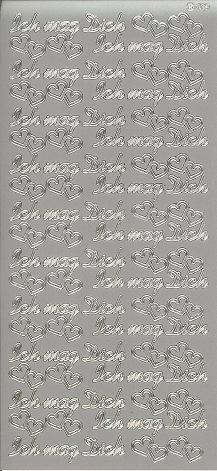 Ich mag Dich
Ich mag Dich
Ich mag Dich
Ich mag Dich
Ich mag Dich
Ich mag Dich
Ich mag Dich
Ich mag Dich
Ich mag Dich
Ich mag Dich
Ich mag Dich
Ich mag Dich
Ich mag Dich
Ich mag Dich
Ich mag Dich
Ich mag Dich
Ich mag Dich
Ich mag Dich
Ich mag Dich